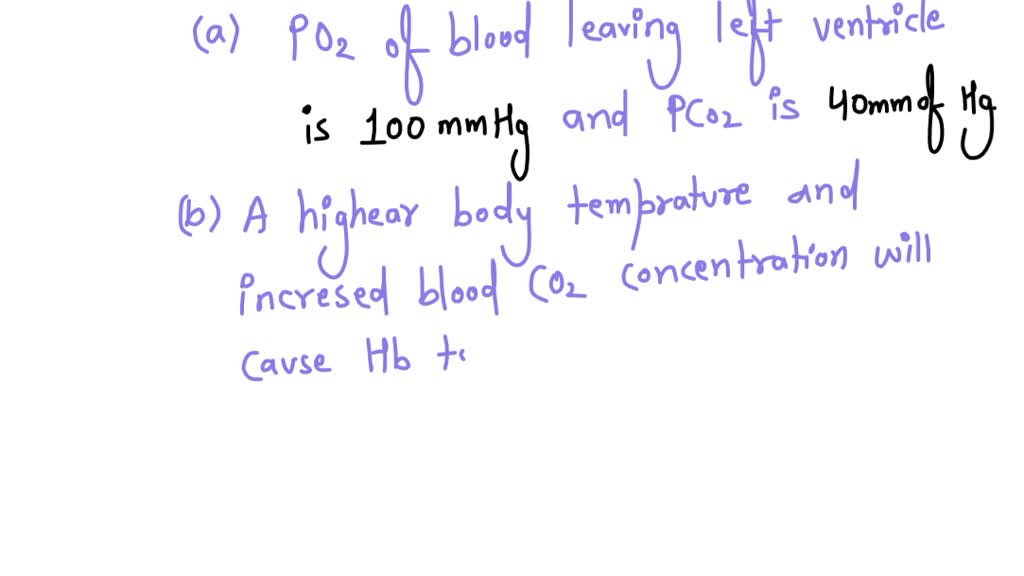 (a) PO2 of blood leaving left ventricle
is 100 mmHg and PCO2 is 40mm of Hg
(b) A highear body temprature and
incresed blood CO2 concentration will
cause Hb t